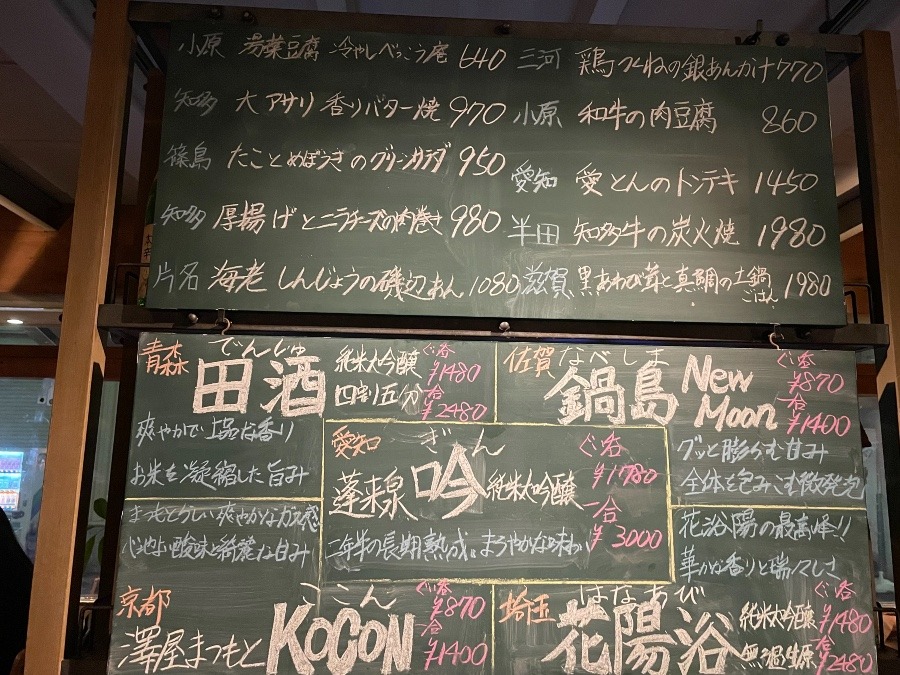 小原 湯葉豆腐 冷やしべっこう庵 640
知多 大アサリ 香りバター焼 970
篠島 たことめぼうきのグリーンサラダ 950
知多 厚揚げとニラチーズの肉巻き 980
片名 海老しんじょうの磯辺あん 1080
三河 鶏つくねの銀あんかけ 770
小原 和牛の肉豆腐 860
愛知 愛とんのトンテキ 1450
半田 知多牛の炭火焼 1980
滋賀 黒あわび茸と真鯛の土鍋ごはん 1980
青森 でんしゅ
田酒 純米大吟醸
四割五分
ぐい呑 ¥1480
一合 ¥2480
爽やかで上品な香り
お米を凝縮した旨み
佐賀 なべしま
鍋島 New Moon
ぐい呑 ¥870
一合 ¥1400
グッと膨らむ甘み
全体を包みこむ微発泡
愛知 ぎん
蓬莱泉 吟 純米大吟醸
ぐい呑 ¥1780
一合 ¥3000
二年半の長期熟成、まろやかな味わい
まつもとらしい爽やかなガス感
心地よい酸味と綺麗な甘み
京都 ここん
澤屋まつもと KOCON
ぐい呑 ¥870
一合 ¥1400
花浴陽の最高峰!!
華かな香りと瑞々しさ
埼玉 はなあび
花陽浴 純米大吟醸
無濾過生原
ぐい呑 ¥1480
一合 ¥2480